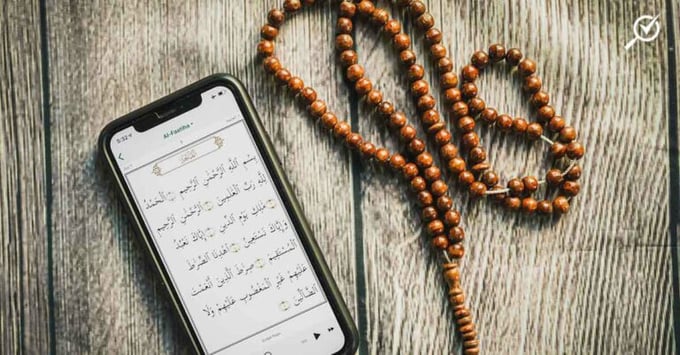 5:32
Al-Faatiha
الفاتحة
بِسْمِ اللَّهِ الرَّحْمَٰنِ الرَّحِيمِ ۝ الْحَمْدُ
لِلَّهِ رَبِّ الْعَالَمِينَ ۝ الرَّحْمَٰنِ الرَّحِيمِ
۝ مَالِكِ يَوْمِ الدِّينِ ۝ إِيَّاكَ نَعْبُدُ
وَإِيَّاكَ نَسْتَعِينُ ۝ اهْدِنَا الصِّرَاطَ
الْمُسْتَقِيمَ ۝ صِرَاطَ الَّذِينَ أَنْعَمْتَ
عَلَيْهِمْ غَيْرِ الْمَغْضُوبِ عَلَيْهِمْ وَلَا
الضَّالِّينَ ۝